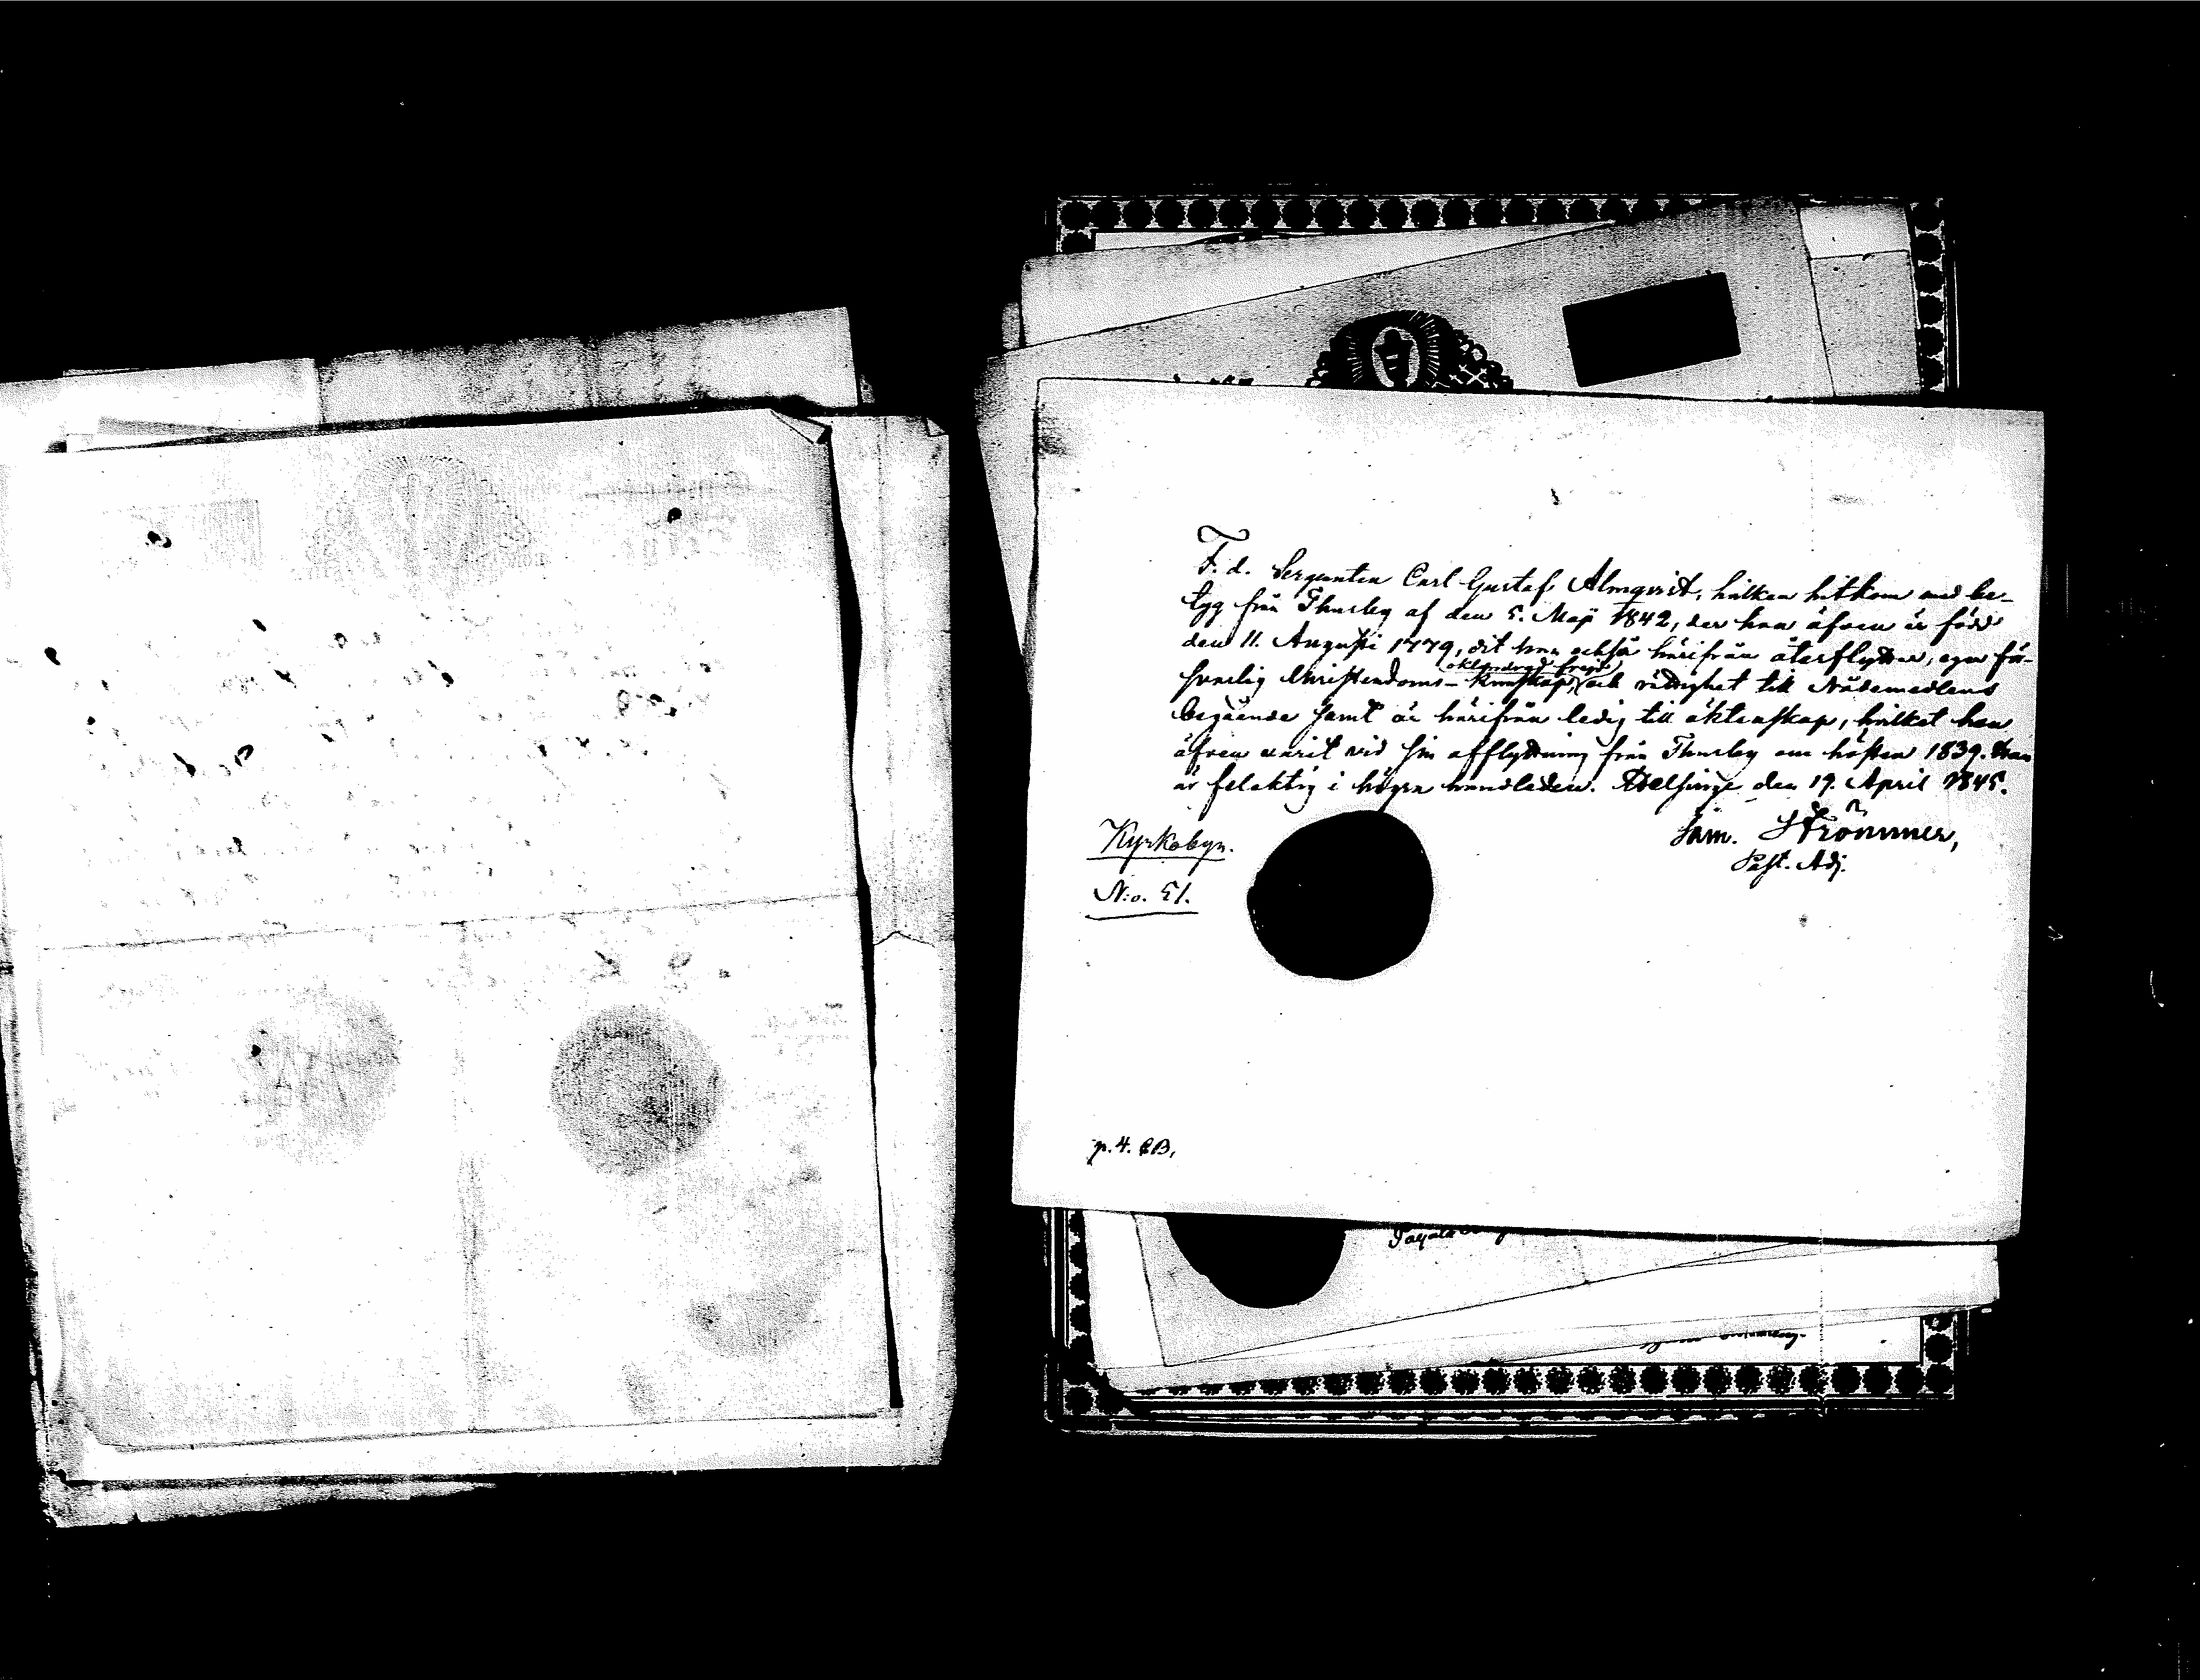 F. d. Sergeanten Carl Gustaf Almqvist, hvilken hitkom med be-
tyg från Thusby af den 5. Maji 1842, der han äfven är född
den 11. Augusti 1779, dit han också härifrån återflyttar, eger för-
oklandrad frejd
svarlig Christendoms-kunskap, och rättighet till Nådemedlens
begående samt är härifrån ledig till äktenskap, hvilket han
äfven varit vid sin afflyttning från Thusby om hösten 1839. Han
är felaktig i högra handleden. Helsinge den 19. April 1845.
Sam. Strömmer,
Past. Adj.
Kyrkobyn.
N:o. 51.
p. 4. CB,